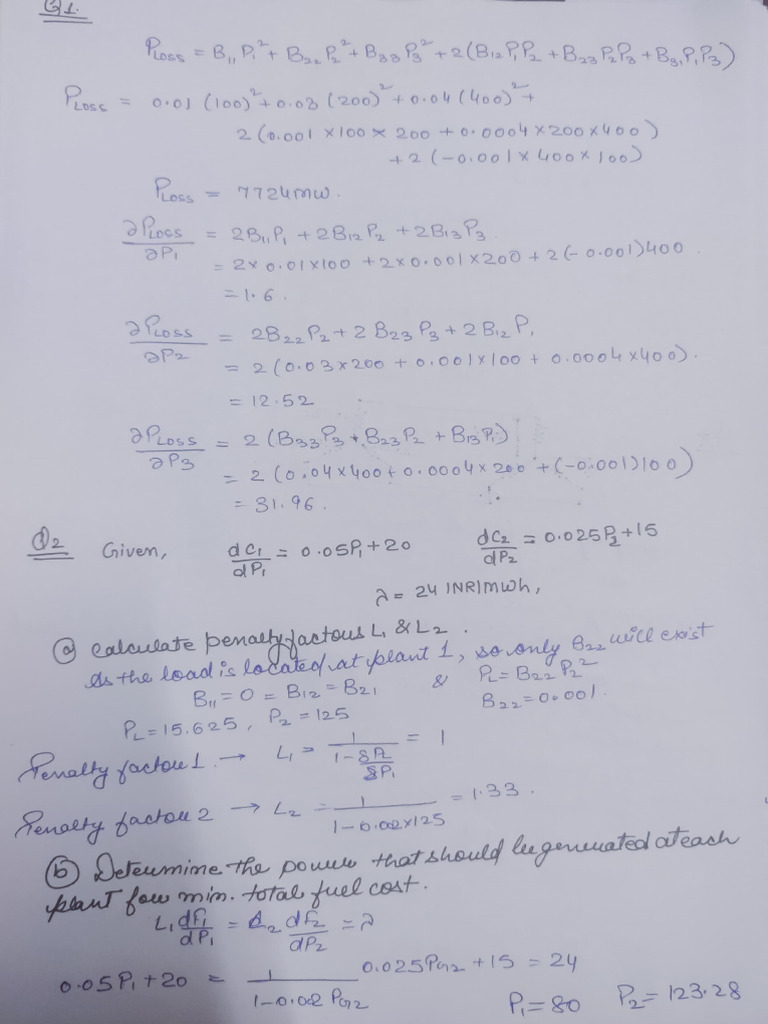 Q1.
PLoss = B11 P1² + B22 P2² + B33 P3² + 2(B12 P1P2 + B23 P2P3 + B31 P1P3)
PLoss = 0.01 (100)² + 0.03 (200)² + 0.04 (400)² +
2 (0.001 × 100 × 200 + 0.0004 × 200 × 400)
+ 2 (-0.001 × 400 × 100)
PLoss = 7724mw.
∂PLoss/∂P1 = 2B11P1 + 2B12P2 + 2B13P3
= 2 × 0.01 × 100 + 2 × 0.001 × 200 + 2 (-0.001) 400
= 1.6.
∂PLoss/∂P2 = 2B22P2 + 2B23P3 + 2B12P1
= 2 (0.03 × 200 + 0.001 × 100 + 0.0004 × 400).
= 12.52
∂PLoss/∂P3 = 2 (B33P3 + B23P2 + B13P1)
= 2 (0.04 × 400 + 0.0004 × 200 + (-0.001) 100)
= 31.96.
Q2 Given, dC1/dP1 = 0.05P1 + 20 dC2/dP2 = 0.025P2 + 15
λ = 24 INR/mwh,
(a) calculate penalty factors L1 & L2.
As the load is located at plant 1, so only B22 will exist
B11 = 0 = B12 = B21 & PL = B22 P2²
PL = 15.625, P2 = 125 B22 = 0.001.
Penalty factor 1. → L1 = 1/(1 - δPL/δP1) = 1
Penalty factor 2 → L2 = 1/(1 - 0.002×125) = 1.33.
(b) Determine the power that should be generated at each
plant for min. total fuel cost.
L1 dF1/dP1 = L2 dF2/dP2 = λ
0.05P1 + 20 = 1/(1 - 0.002 PG2) 0.025PG2 + 15 = 24
P1 = 80 P2 = 123.28